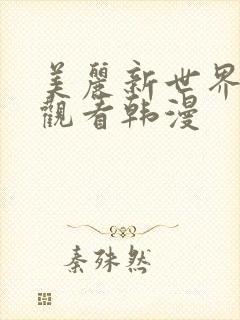 美麗新世界
觀看韩漫
秦殊然